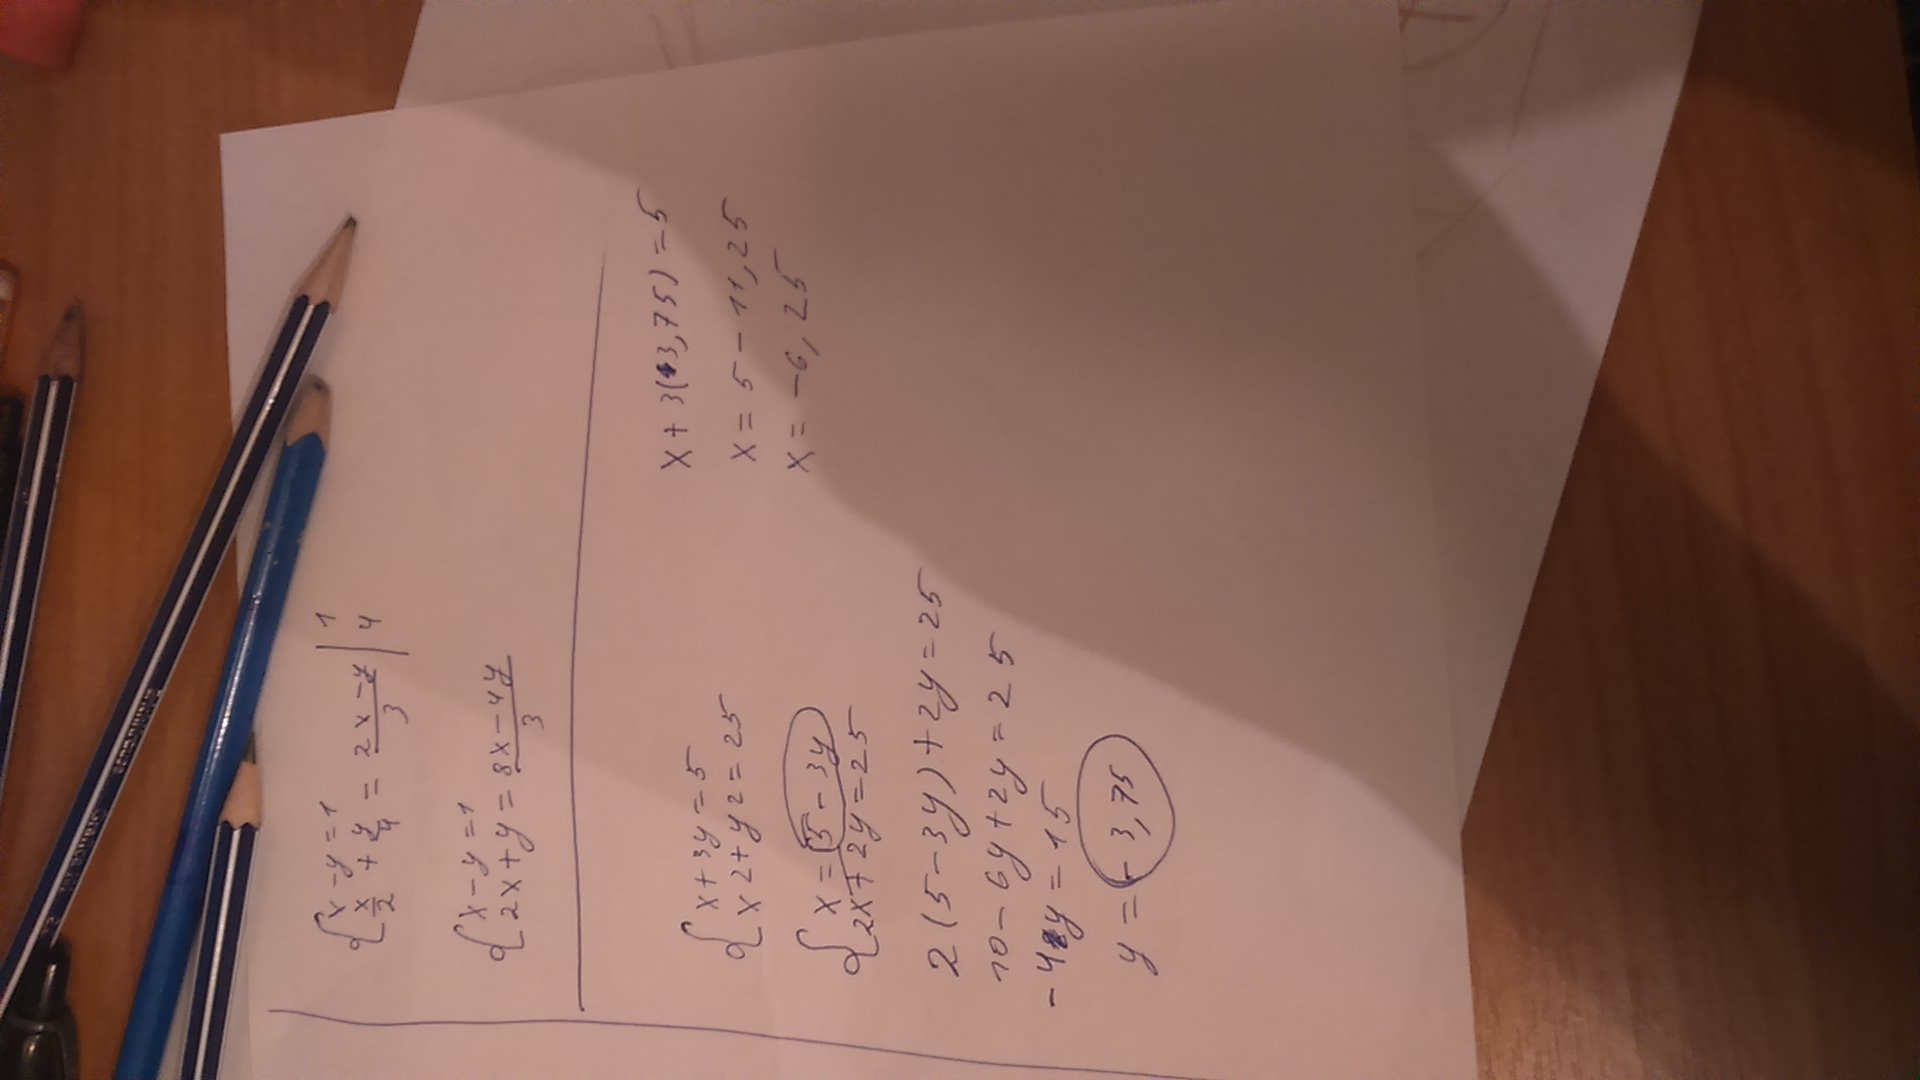 { x - y = 1
x/2 + y/4 = 2x - y/3 | 1/4
{ x - y = 1
2x + y = 8x - 4y/3
{ x + 3y = 5
x2 + y2 = 25
{ x = 5 - 3y
2x + 2y = 25
2(5 - 3y) + 2y = 25
10 - 6y + 2y = 25
- 4y = 15
y = - 3,75
x + 3(3,75) = 5
x = 5 - 11,25
x = - 6,25